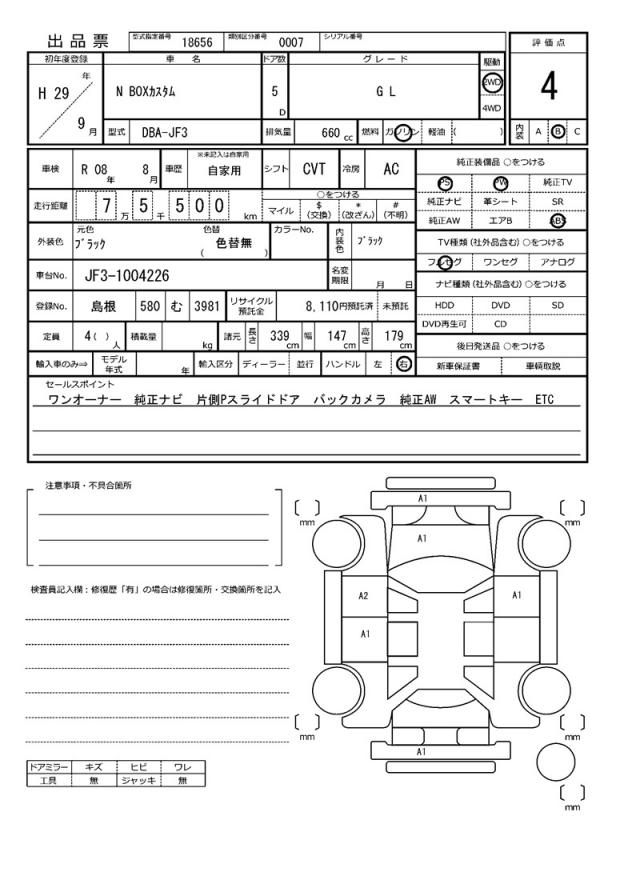 出品票 型式指定番号 18656 類別区分番号 0007 シリアル番号
初年度登録 車名 ドア数 グレード 駆動 評価点
H 29 年 9 月 N BOXカスタム 5 D G L 2WD 4WD 4
型式 DBA-JF3 排気量 660 cc 燃料 ガソリン 軽油 ( ) 内装 A B C
車検 R 08 年 8 月 車歴 ※未記入は自家用 自家用 シフト CVT 冷房 AC
純正装備品 ○をつける
PS PW 純正TV
純正ナビ 革シート SR
純正AW エアB ABS
走行距離 7 万 5 千 5 0 0 km
○をつける
マイル $ (交換) * (改ざん) # (不明)
外装色 元色 ブラック 色替 色替無 ( ) カラーNo. 内装色 ブラック
TV種類 (社外品含む) ○をつける
フルセグ ワンセグ アナログ
車台No. JF3-1004226 名変期限 月 日
ナビ種類 (社外品含む) ○をつける
HDD DVD SD
DVD再生可 CD
登録No. 島根 580 む 3981 リサイクル預託金 8,110円預託済 未預託
定員 4( ) 人 積載量 kg 諸元 長さ 339 cm 幅 147 cm 高さ 179 cm
後日発送品 ○をつける
新車保証書 車輌取説
輸入車のみ⇒ モデル年式 年 輸入区分 ディーラー 並行 ハンドル 左 右
セールスポイント
ワンオーナー 純正ナビ 片側Pスライドドア バックカメラ 純正AW スマートキー ETC
注意事項・不具合箇所
検査員記入欄：修復歴「有」の場合は修復箇所・交換箇所を記入
ドアミラー キズ ヒビ ワレ
工具 無 ジャッキ 無
A1
[ ] mm [ ] mm
A1
A2 A1
A1
[ ] mm [ ] mm
A1
[ ] mm